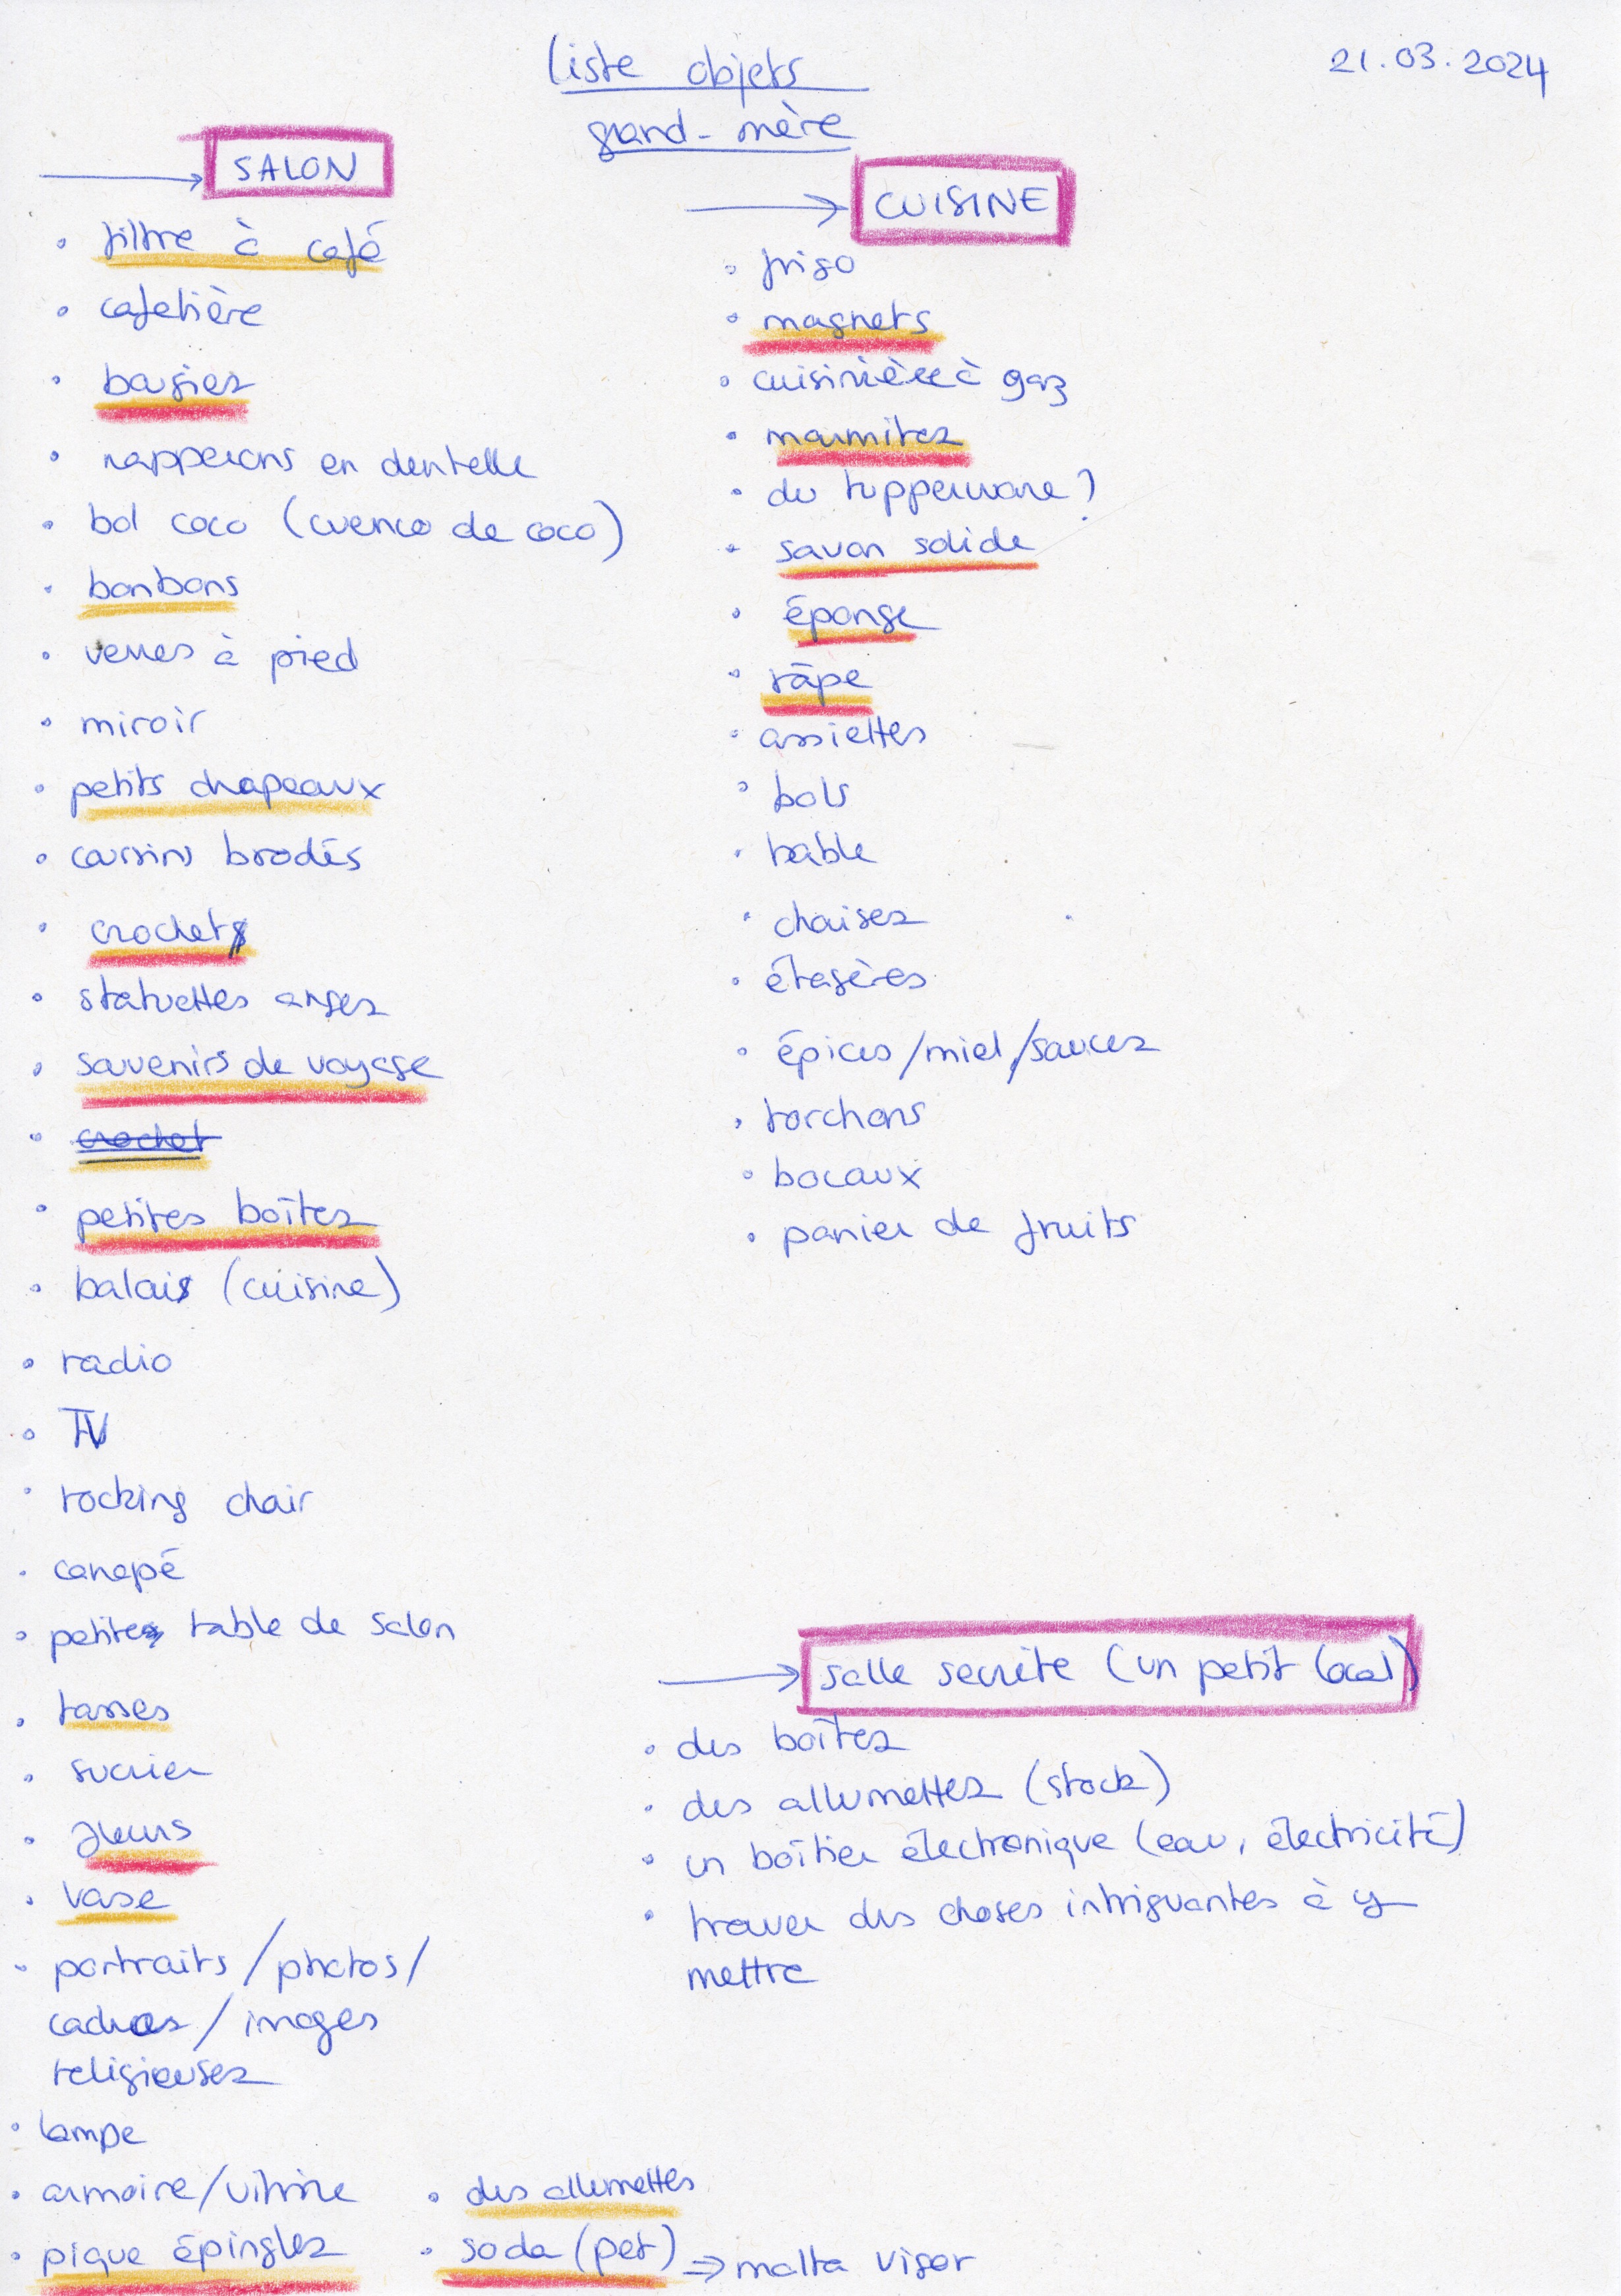 liste objets
grand-mère
21.03.2024
→ SALON
• filtre à café
• cafetière
• bougies
• napperons en dentelle
• bol coco (cuenco de coco)
• bonbons
• verres à pied
• miroir
• petits chapeaux
• coussins brodés
• crochet
• statuettes anges
• souvenirs de voyage
• crochet
• petites boîtes
• balai (cuisine)
• radio
• TV
• rocking chair
• canapé
• petite table de salon
• tasses
• sucrier
• fleurs
• vase
• portraits/photos/
cadres/images
religieuses
• lampe
• armoire/vitrine
• pique épingles
• des allumettes
• soda (pet) ⇒ malta vigor
→ CUISINE
• frigo
• magnets
• cuisinière à gaz
• marmites
• du tupperware?
• savon solide
• éponge
• râpe
• assiettes
• bols
• table
• chaises
• étagères
• épices/miel/sauces
• torchons
• bocaux
• panier de fruits
→ salle secrète (un petit local)
• des boîtes
• des allumettes (stock)
• un boîtier électronique (eau, électricité)
• trouver des choses intriguantes à y
mettre